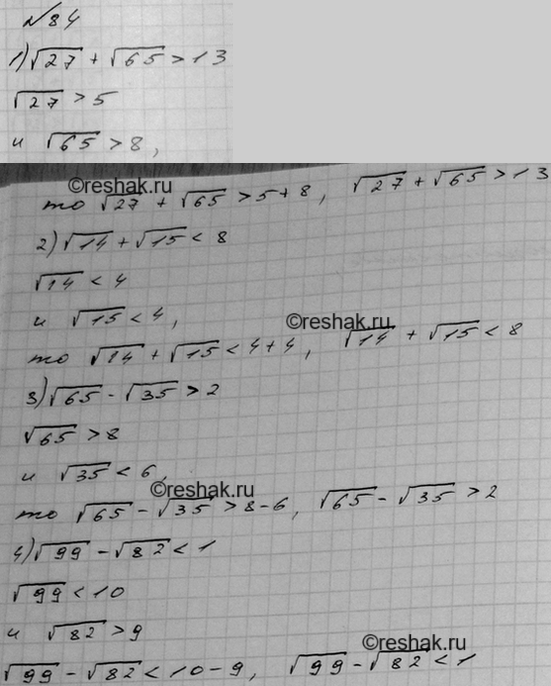 №84
1) √27 + √65 > 13
√27 > 5
и √65 > 8,
©reshak.ru
то √27 + √65 > 5+8, √27 + √65 > 13
2) √14 + √15 < 8
√14 < 4
и √15 < 4,
©reshak.ru
то √14 + √15 < 4+4, √14 + √15 < 8
3) √65 - √35 > 2
√65 > 8
и √35 < 6,
©reshak.ru
то √65 - √35 > 8-6, √65 - √35 > 2
4) √99 - √82 < 1
√99 < 10
и √82 > 9
©reshak.ru
√99 - √82 < 10-9, √99 - √82 < 1